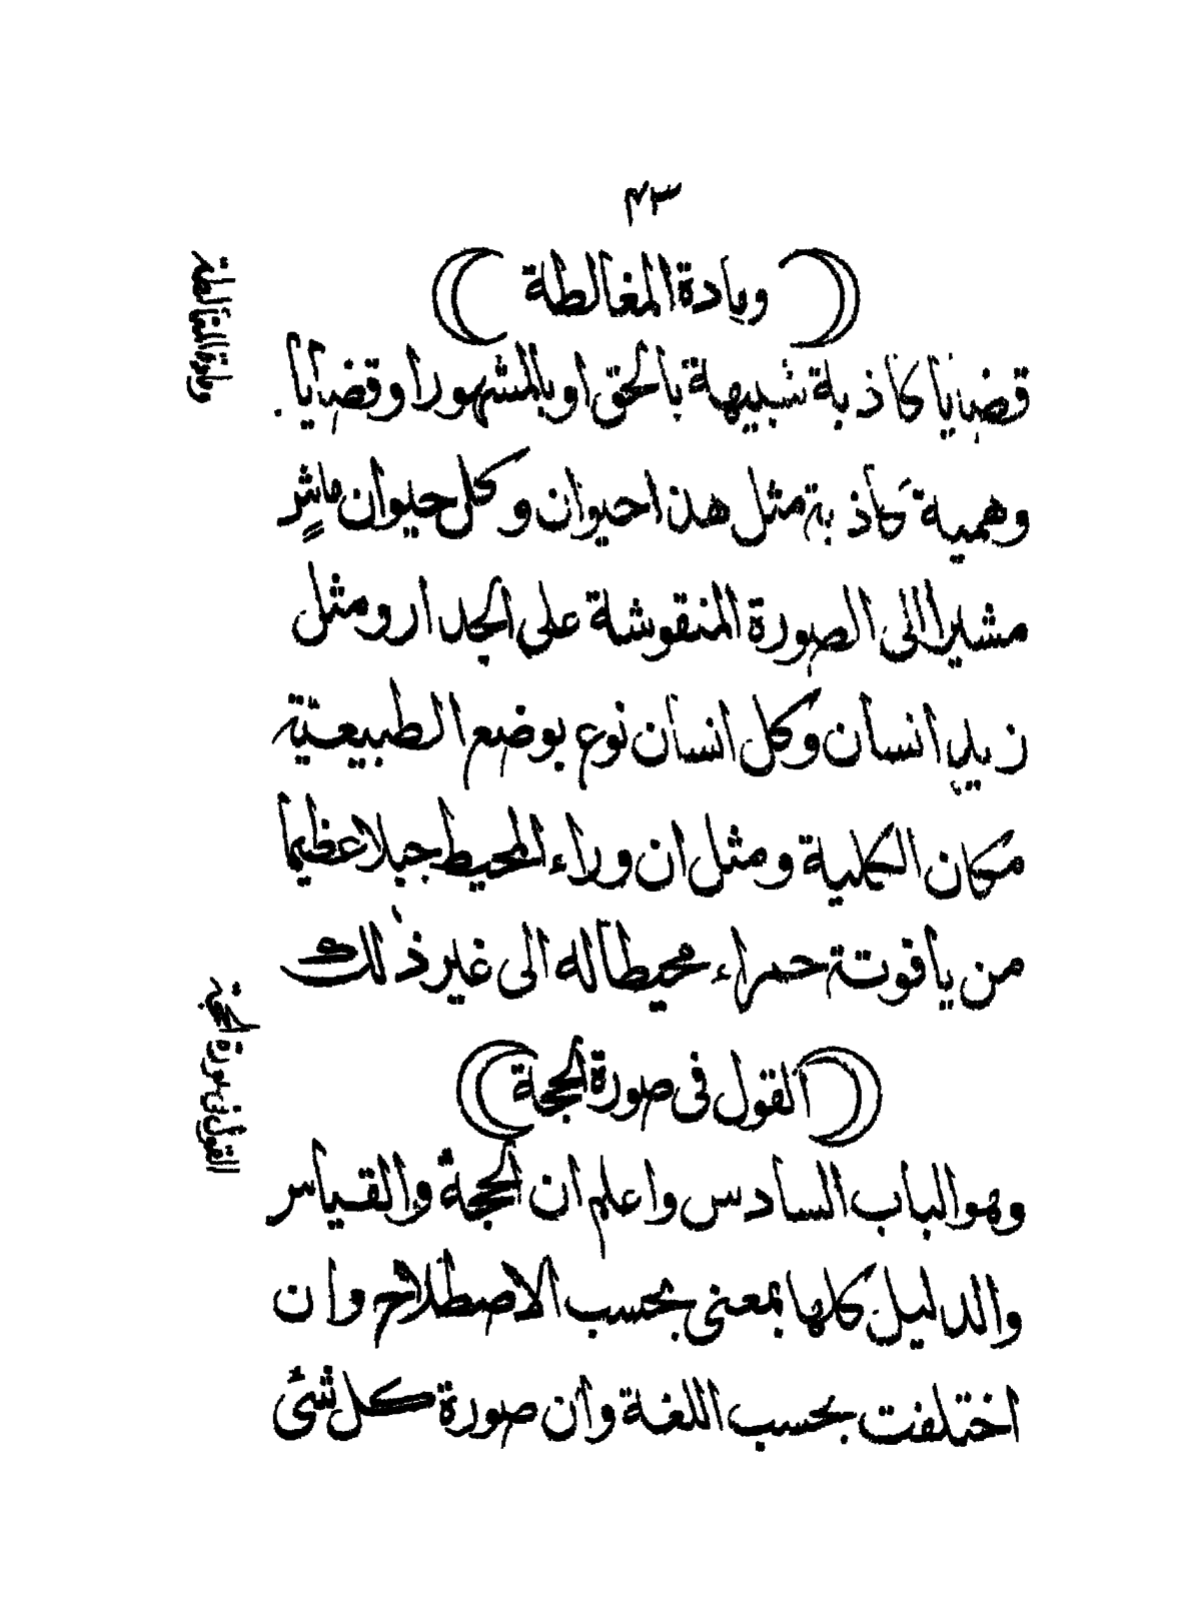 ٤٣
ويادة المغالطة
ويادة المغالطة
قضايا كاذبة شبيهة بالحق او بالمشهور او قضايا
وهمية كاذبة مثل هذا حيوان وكل حيوان ماشٍ
مشيرا الى الصورة المنقوشة على الجدار ومثل
زيد انسان وكل انسان نوع بوضع الطبيعيّة
مكان الكلية ومثل ان وراء المحيط جبلا عظيما
من ياقوتة حمراء محيطا له الى غير ذلك
القول في صورة الحجة
القول في صورة الحجة
وهو الباب السادس واعلم ان الحجة والقياس
والدليل كلها بمعنى بحسب الاصطلاح وان
اختلفت بحسب اللغة وان صورة كل شئ